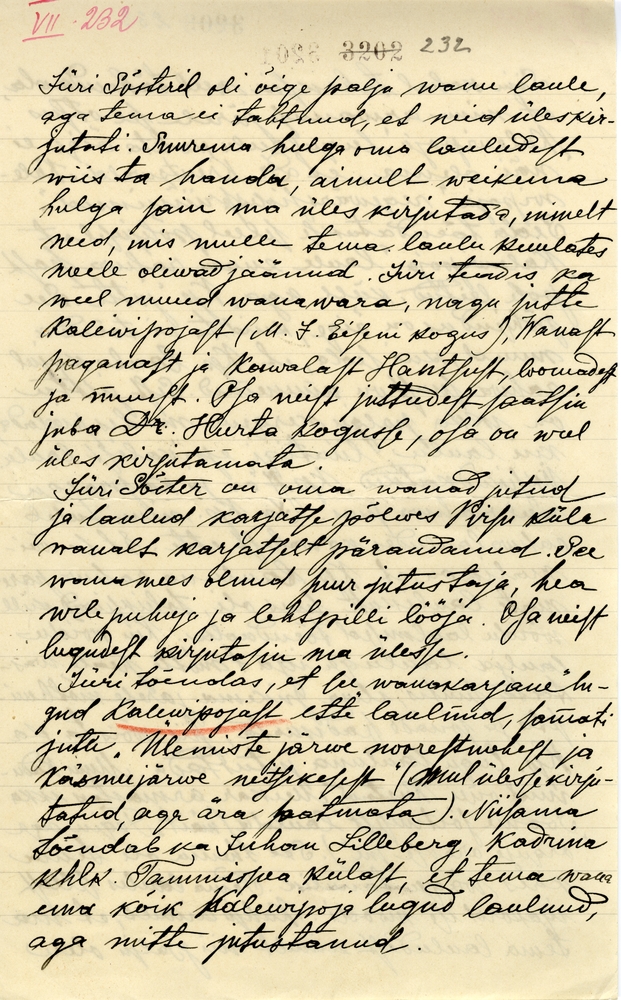 VII. 232
3202 232
Jüri Sõsteril oli õige palju wanu laule,
aga tema ei tahtnud, et neid üleskir-
jutati. Suurema hulga oma lauludest
wiis ta hauda, ainult weikema
hulga sain ma üles kirjutada, nimelt
need, mis mulle tema laulu kuulates
meele oliwad jäänud. Jüri teadis ka
weel muud wanawara, nagu jutte
Kalewipojast (M. J. Eiseni kogus), Wanast
paganast ja Kawalast Hantsust, loomadest
ja muust. Osa neist juttudest saatsin
juba Dr. Hurta kogusse, osa on weel
üles kirjutamata.
Jüri Sõster on oma wanad jutud
ja laulud karjatse põlwes Pirsu küla
wanalt karjatselt pärandanud. See
wanamees olnud suur jutustaja, hea
wile puhuja ja lehtpilli lööja. Osa neist
lugudest kirjutasin ma ülesse.
Jüri tõendas, et see wanakarjane "lu-
gud Kalewipojast" ette laulnud, samati
jutu "Ülemiste järwe noorestmehest ja
Käsmu järwe neitsikesest" (Mul ülesse kirju-
tatud, aga ära saatmata). Niisama
tõendab ka Juhan Lilleberg, Kadrina
khlk. Tammispea külast, et tema wana
ema kõik Kalewipoja lugud laulnud,
aga mitte jutustanud.